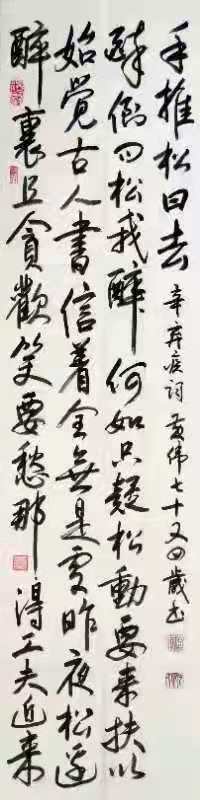 醉裏且貪歡笑要愁那得工夫近来
始覺古人書信着全無是處昨夜松邊
醉倒问松我醉何如只疑松動要来扶以
手推松曰去
辛弃疾词 黄伟七十又四歲书